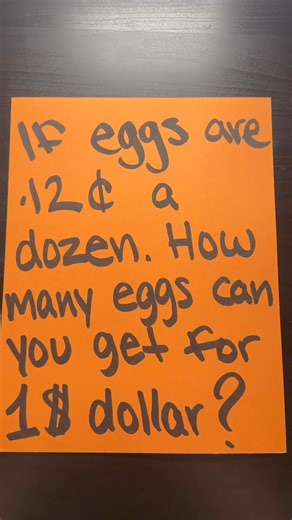 If eggs are
.12¢ a
dozen. How
many eggs can
you get for
1$ dollar?